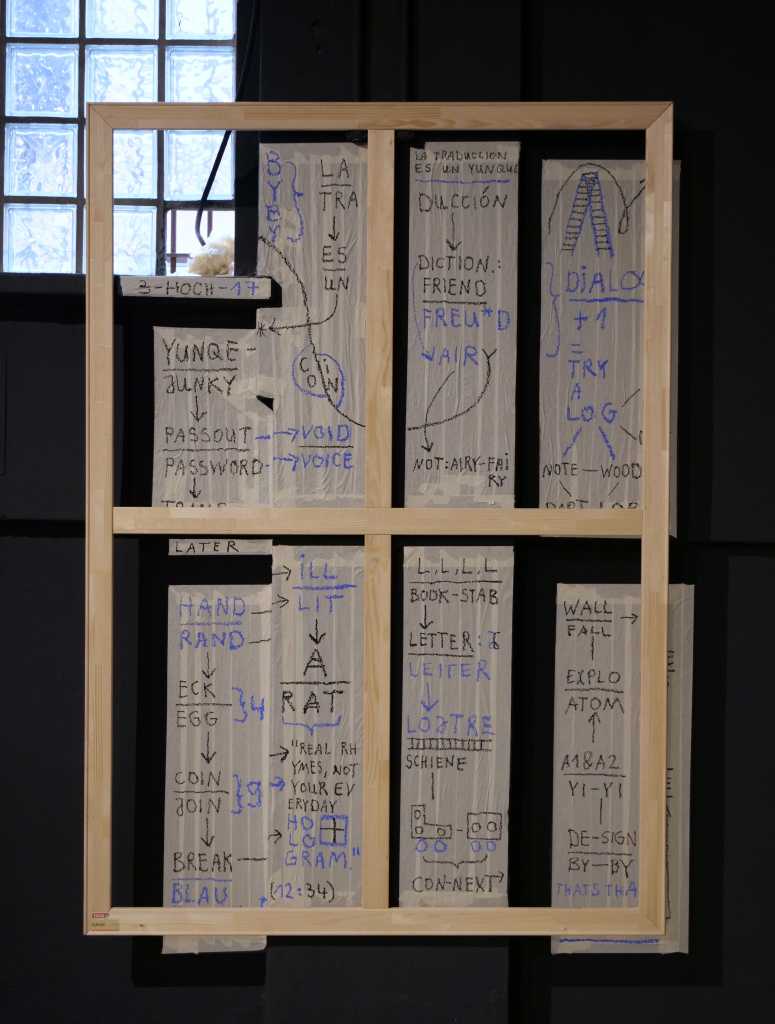 BYBY
LA
TRA
ES
UN
3-HOCH-17
*
YUNQE-
JUNKY
PASSOUT
PASSWORD
COIN
VOID
VOICE
LATER
LA TRADUCCION
ES UN YUNQUE
DUCCIÓN
DICTION.:
FRIEND
FREU*D
VAIRY
NOT:AIRY-FAI
RY
DIALO
+1
=
TRY
A
LOG
NOTE—WOOD
HAND
RAND
ECK
EGG
}4
COIN
JOIN
}9
BREAK
BLAU
ILL
LIT
A
RAT
"REAL RH
YMES, NOT
YOUR EV
ERYDAY
HO
LO
GRAM."
(12:34)
L,L,L,L
BOOK-STAB
LETTER:
LEITER
LOJTRE
SCHIENE
CON-NEXT
WALL
FALL
EXPLO
ATOM
A1&A2
YI-YI
DE-SIGN
BY-BY
THATS THA